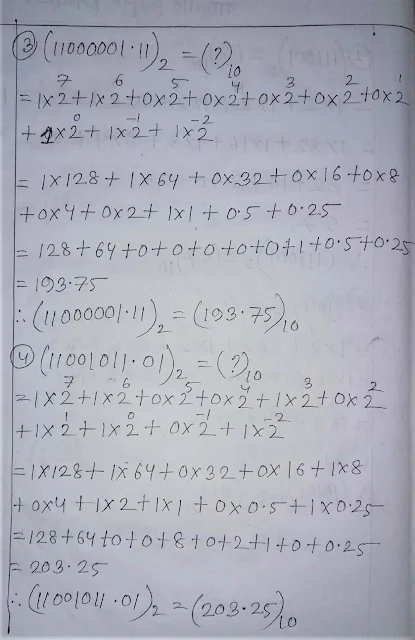 ③ (11000001.11)₂ = (?)₁₀
= 1×2⁷+1×2⁶+0×2⁵+0×2⁴+0×2³+0×2²+0×2¹
+ 1×2⁰+ 1×2⁻¹+ 1×2⁻²
= 1×128+ 1×64 + 0×32+0×16+0×8
+0×4+ 0×2+ 1×1 + 0.5 + 0.25
= 128+64+0+0+0+0+0+1+0.5+0.25
= 193.75
∴ (11000001.11)₂ = (193.75)₁₀
④ (11001011.01)₂ = (?)₁₀
= 1×2⁷+1×2⁶+0×2⁵+0×2⁴+1×2³+0×2²
+1×2¹+1×2⁰+ 0×2⁻¹+ 1×2⁻²
= 1×128+ 1×64+0×32+0×16+1×8
+ 0×4 + 1×2+1×1 + 0×0.5+1×0.25
= 128+64+0+0+8+0+2+1+0+0.25
= 203.25
∴ (11001011.01)₂ = (203.25)₁₀